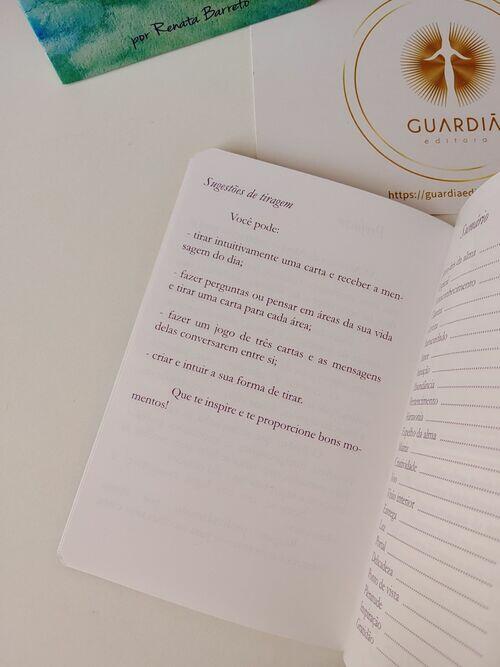 por Renata Barreto
GUARDIÃ
editora
https://guardiaed
Sugestões de tiragem
Você pode:
- tirar intuitivamente uma carta e receber a men-
sagem do dia;
- fazer perguntas ou pensar em áreas da sua vida
e tirar uma carta para cada área;
- fazer um jogo de três cartas e as mensagens
delas conversarem entre si;
- criar e intuir a sua forma de tirar.
Que te inspire e te proporcione bons mo-
mentos!
Sumário
Espelho da alma
Criatividade
Visão interior
Entrega
Luz
Portal
Delicadeza
Ponto de vista
Plenitude
Inspiração
Gratidão